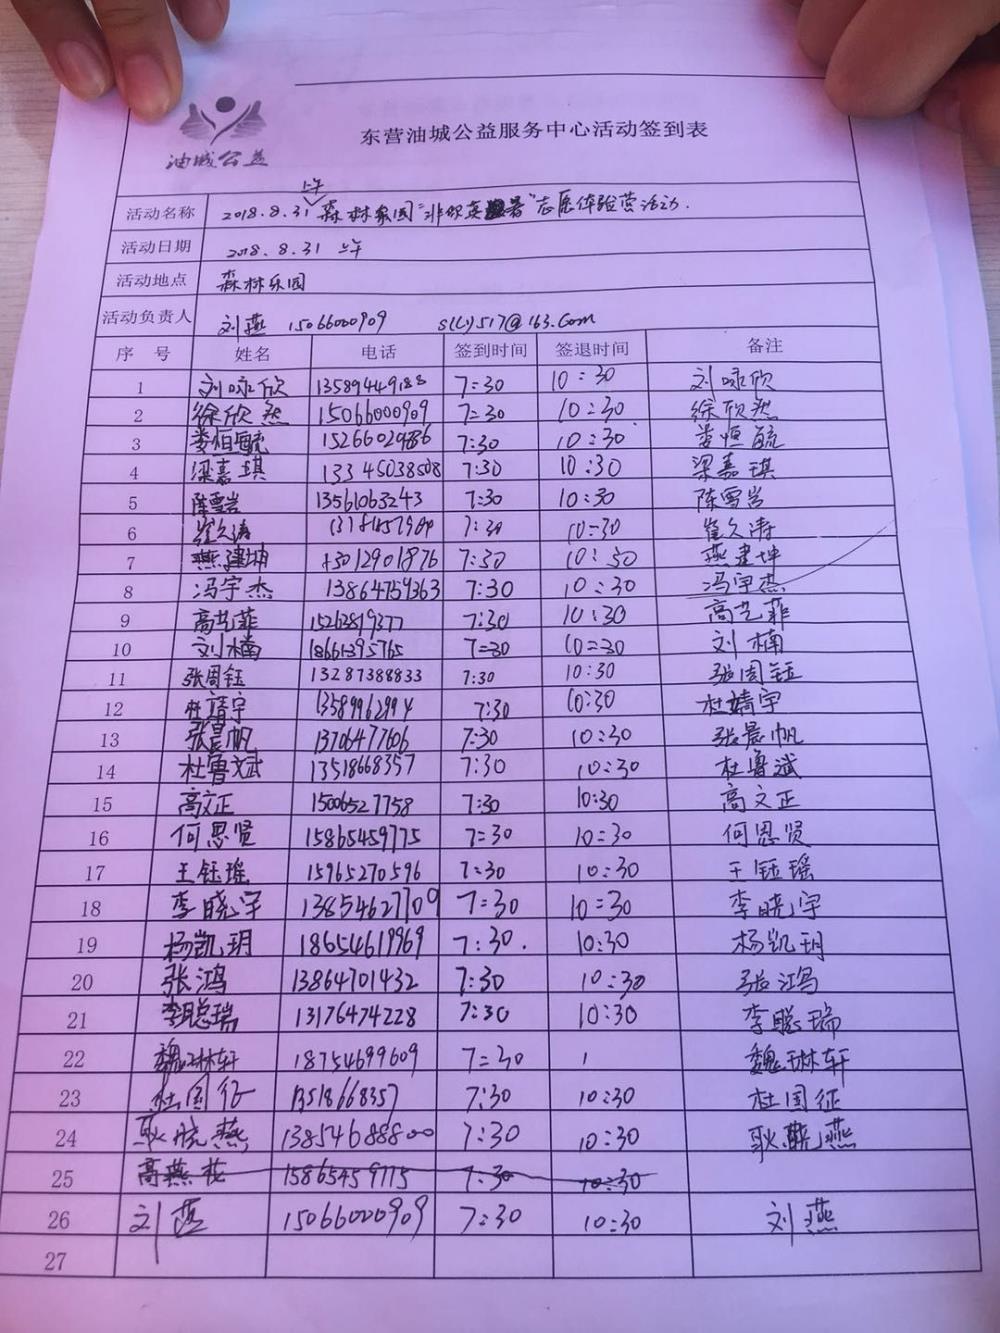 油城公益
东营油城公益服务中心活动签到表
上午
活动名称 2018.8.31 森林家园"非你英雄暑"志愿体验营活动.
活动日期 2018.8.31 上午
活动地点 森林乐园
活动负责人 刘燕 15066000909 slly517@163.com
序 号 姓名 电话 签到时间 签退时间 备注
1 刘咏欣 13589449188 7:30 10:30 刘咏欣
2 徐欣然 15066000909 7:30 10:30 徐欣然
3 娄恒毓 15266029886 7:30 10:30 娄恒毓
4 梁嘉琪 13345038508 7:30 10:30 梁嘉琪
5 陈雪岩 13561063243 7:30 10:30 陈雪岩
6 崔久涛 7:30 10:30 崔久涛
7 燕建坤 15012901876 7:30 10:30 燕建坤
8 冯宇杰 13864759363 7:30 10:30 冯宇杰
9 高艺菲 15263819377 7:30 10:30 高艺菲
10 刘楠 18661395765 7:30 10:30 刘楠
11 张周钰 13287388833 7:30 10:30 张周钰
12 杜靖宇 13589962994 7:30 10:30 杜靖宇
13 张晨帆 13706477606 7:30 10:30 张晨帆
14 杜鲁斌 13518668357 7:30 10:30 杜鲁斌
15 高文正 15006527758 7:30 10:30 高文正
16 何恩贤 15865459775 7:30 10:30 何恩贤
17 王钰瑶 15965270596 7:30 10:30 王钰瑶
18 李晓宇 13854627709 7:30 10:30 李晓宇
19 杨凯玥 18654619969 7:30. 10:30 杨凯玥
20 张鸿 13864701432 7:30 10:30 张鸿
21 李聪瑞 13176474228 7:30 10:30 李聪瑞
22 魏琳轩 18754699609 7:30 1 魏琳轩
23 杜国征 13518668357 7:30 10:30 杜国征
24 耿晓燕 13854688800 7:30 10:30 耿晓燕
25 高燕花 15865459775 7:30 10:30
26 刘燕 15066000909 7:30 10:30 刘燕
27